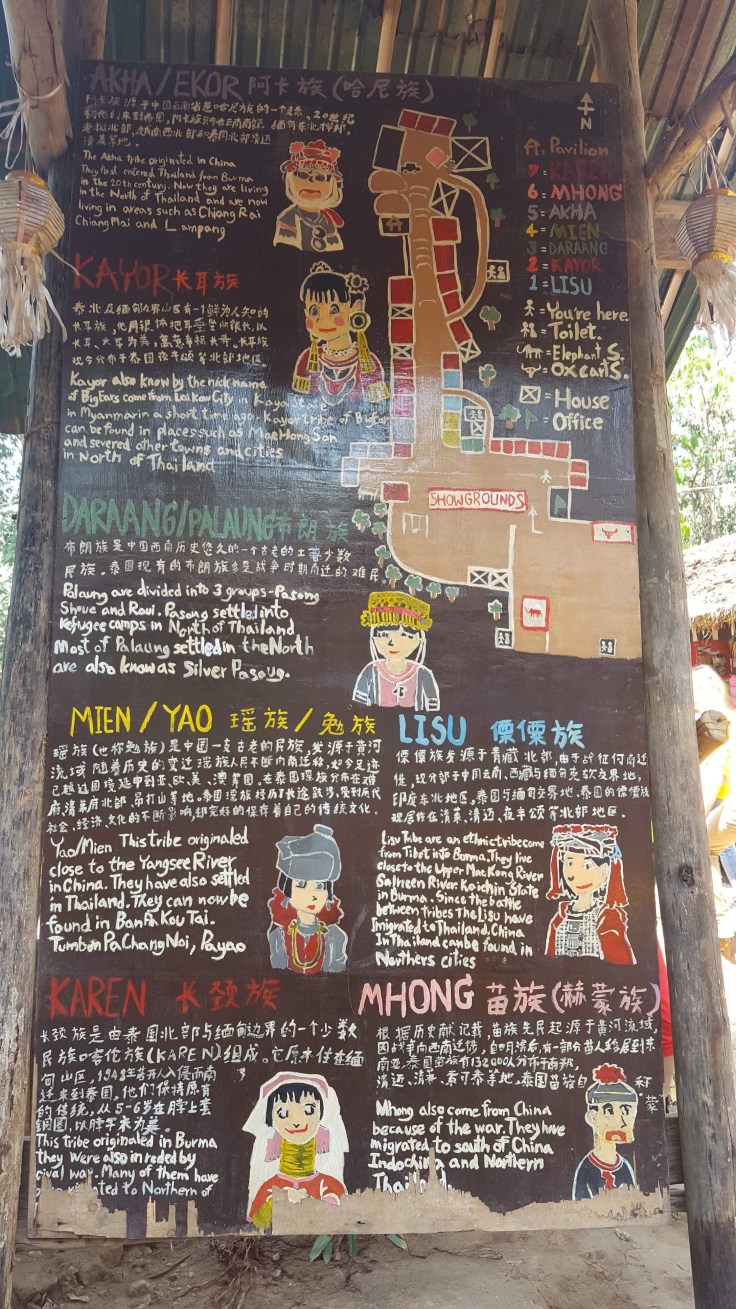 AKHA/EKOR 阿卡族(哈尼族)
The Akha tribe originated in China
They first entered Thailand from Burma
in the 20th century. Now they are living
in the North of Thailand and are now
living in areas such as Chiang Rai
Chiang Mai and Lampang
N
Pavilion
7 = KAREN
6 = MHONG
5 = AKHA
4 = MIEN
3 = DARAANG
2 = KAYOR
1 = LISU
= You're here.
= Toilet.
= Elephant S.
= Oxcart S.
= House
= Office
SHOWGROUNDS
KAYOR 长耳族
Kayor also know by the nick name
of Big Ears come from Loi Kow City in Kaya
in Myanmar in a short time ago. Kayor tribe of Big Ear
can be found in places such as Mae Hong Son
and severed other towns and cities
in North of Thailand
DARAANG/PALAUNG 布朗族
布朗族是中国西南历史悠久的一个古老的土著少数
民族。泰国现有的布朗族多是战争时期南迁的难民
Palaung are divided into 3 groups-Pasong
Shwe and Raui. Pasong settled into
Refugee camps in North of Thailand
Most of Palaung settled in the North
are also know as Silver Pasoug.
MIEN / YAO 瑶族/勉族
瑶族(也称勉族)是中国一支古老的民族,发源于黄河
流域,随着历史的变迁瑶族人民不断的南迁移,如今足迹
已越过国境,延申到亚、欧、美、澳等国,在泰国瑶族分布在难
社会、经济、文化的不断影响,却完好的保存着自己的传统文化.
Yao/Mien This tribe originaled
close to the Yangsee River
in China. They have also settled
in Thailand. They can now be
found in Banfa Kou Tai.
Tumbon Pa Chang Noi, Payao
LISU 傈僳族
傈僳族发源于青藏北部,由于战征何南迁
徙,现分部于中国云南、西藏与缅甸克钦交界地;
印度东北地区。泰国与缅甸交界地。泰国的傈僳族
现居住在清莱、清迈、夜丰颂等北部地区.
Lisu Tribe are an ethnic tribe come
from Tibet into Burma. They live
close to the Upper Mae Kong River
Salreen River Koichin State
in Burma. Since the battle
between tribes The Lisu have
Imigrated to Thailand. China
In Thailand can be found in
Northers cities
KAREN 长颈族
长颈族是由泰国北部与缅甸边界的一个少数
民族-克伦族(KAREN)组成。它原来住在缅
甸山区,1948年若开人入侵而南
迁来到泰国,他们保持原有
的传统,从5-6岁在脖上套
铜圈,以脖子长为美。
This tribe originaled in Burma
they were also inreded by
cival way. Many of them have
to Northern of
MHONG 苗族(赫蒙族)
根据历史献记载,苗族先民起源于黄河流域,
因战争向西南迁彷,自明清后,有一部分苗人移居到东
南亚,泰国苗族有132000人分布于南邦,
清迈、清莱、素可泰等地,泰国苗族自称
蒙
Mhong also come from China
because of the war. They have
migrated to south of China
Indochina and Northern
Thailand